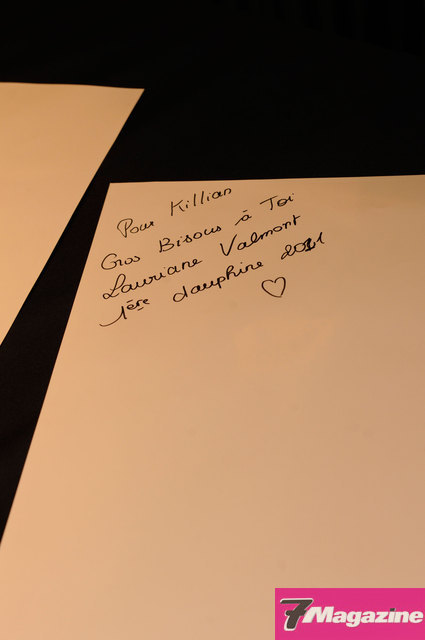 Pour Killian
Gros Bisous à Toi
Lauriane Valmont
1ère dauphine 2011
7Magazine